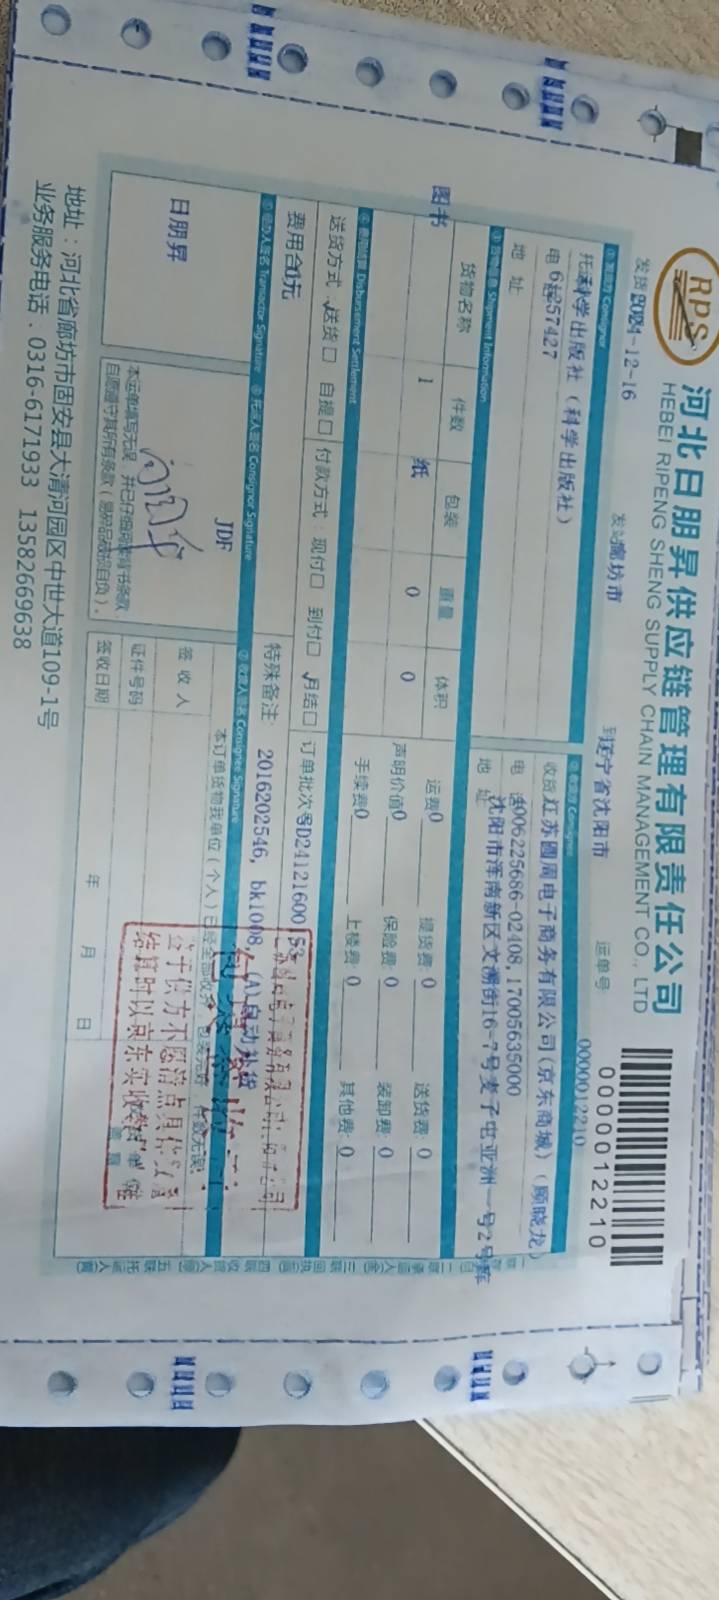 RPS
河北日朋昇供应链管理有限责任公司
HEBEI RIPENG SHENG SUPPLY CHAIN MANAGEMENT CO., LTD
0000012210
发货 2024-12-16
发站 廊坊市
到 辽宁省沈阳市
运单号 0000012210
①发货方 Consignor
②收货方 Consignee
科学出版社（科学出版社）
收货 江苏圆周电子商务有限公司(京东商城)（顾晓龙）
电 61257427
电 4006225686-02408,17005635000
地 址
地 址 沈阳市浑南新区文溯街16-7号麦子屯亚洲一号2号库
③货物信息 Shipment Information
货物名称 件数 包装 重量 体积
运费 0 提货费: 0 送货费: 0
图书 1 纸 0 0
声明价值 0 保险费: 0 装卸费: 0
手续费 0 上楼费: 0 其他费: 0
④费用结算 Disbursement Settlement
送货方式: √送货□ 自提□ 付款方式: 现付□ 到付□ √月结□ 订单批次号
费用合 0元
特殊备注: 2016202546, bk1008, (A)自动补货
⑤经办人签名 Transactor Signature
⑥托运人签名 Consignor Signature
⑦收货人签名 Consignee Signature
日朋昇
JDF
本订单货物我单位（个人）已经全部收到，包装完好，件数无误。
签收人
证件号码
签收日期 年 月 日
本运单填写无误，并已仔细阅读背书条款，
自愿遵守其所有条款（易碎品破损自负）。
鉴于供方不愿清点具体数量
结算时以京东实收数量为准
地址：河北省廊坊市固安县大清河园区中世大道109-1号
业务服务电话：0316-6171933 13582669638